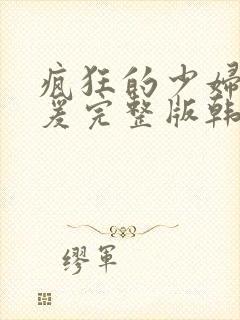 疯狂的少婦
爰完整版韩
缪军